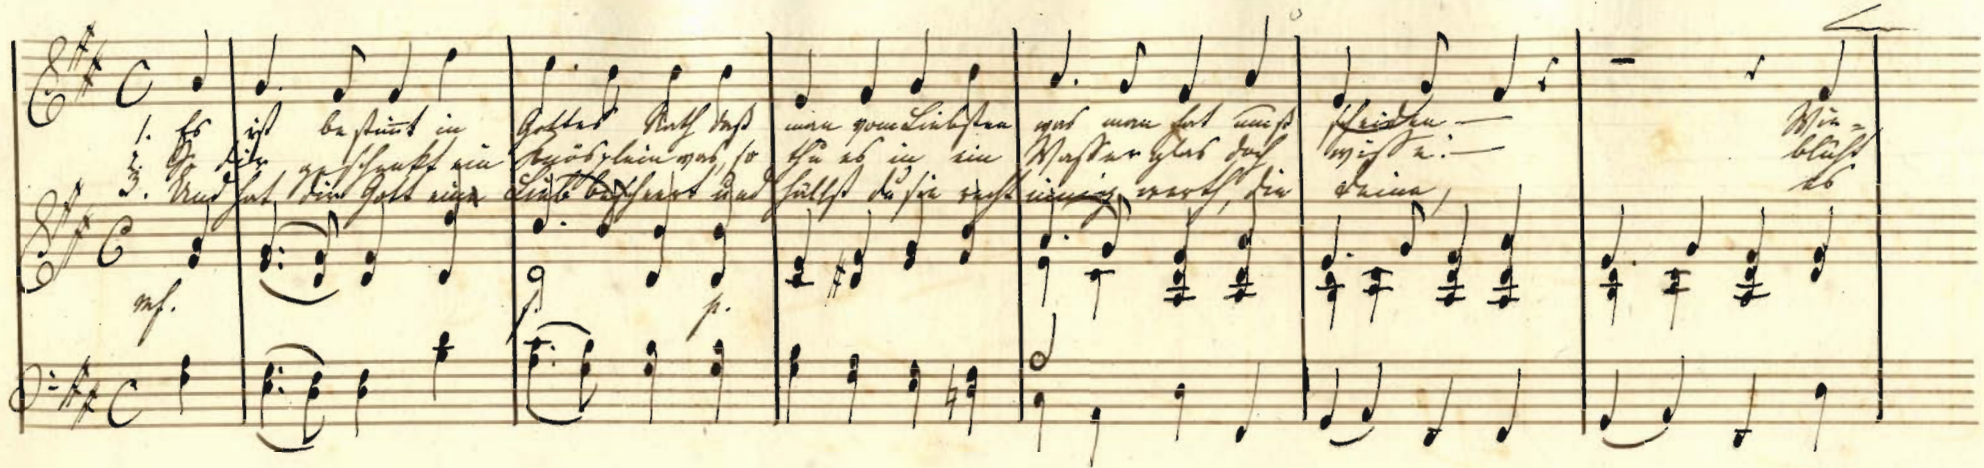 1. Es ist bestimt in Gottes Rath daß man vom Liebsten was man hat muß scheiden — Wie=
2. So dir geschenkt ein Knösplein was, so thu es in ein Wasserglas doch wisse:— blüht
3. Und hat dir Gott eine Lieb bescheert und hältst du sie recht innig werth, die deine, es
mf. f. p.